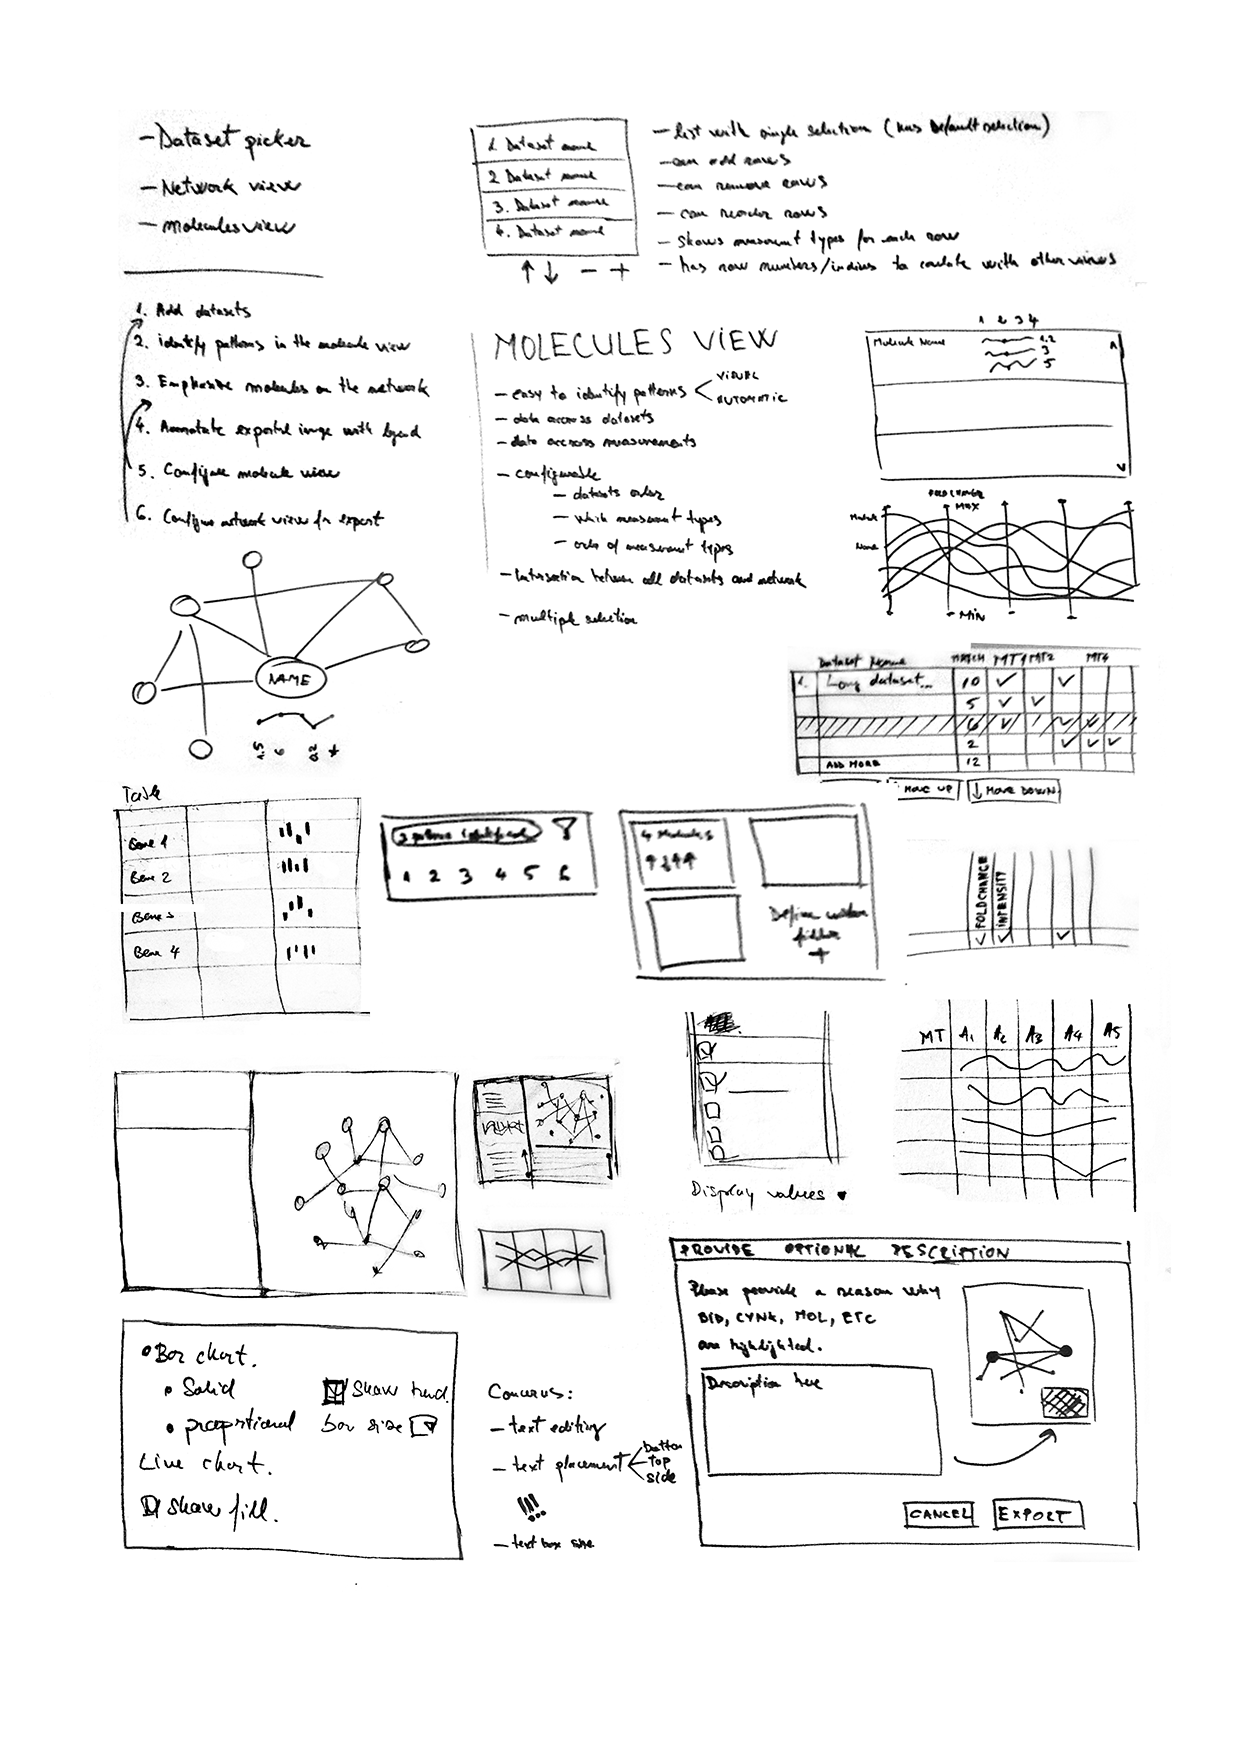 - Dataset picker
- Network view
- molecules view
1. Dataset name
2 Dataset name
3. Dataset name
4. Dataset name
↑ ↓ - +
- list with single selection (has default selection)
- can add rows
- can remove rows
- can reorder rows
- shows measurment types for each row
- has row numbers/indices to corelate with other views
1. Add datasets
2. identify patterns in the molecule view
3. Emphasize molecules on the network
4. Annotate exported image with legend
5. Configure molecule view
6. Configure network view for export
MOLECULES VIEW
- easy to identify patterns
VISUAL
AUTOMATIC
- data accross datasets
- data accross measurements
- configurable
- datasets order
- which measurment types
- order of measurment types
- intersection between all datasets and network
- multiple selection
1 2 3 4
Molecule Name
1.2
3
5
FOLDCHANGE
MAX
Name
MIN
NAME
Dataset Name MATCH MT1 MT2 MT4
1. Long dataset... 10 ✓ ✓
5 ✓ ✓
6 ✓ ✓ ✓
2 ✓ ✓ ✓
ADD MORE 12
MOVE UP ↓ MOVE DOWN
Task
Gene 1
Gene 2
Gene 3
Gene 4
1 2 3 4 5 6
4 Molecules
↑↓↑↑
Define custom
filter
+
FOLDCHANGE
INTENSITY
✓ ✓ ✓
Display values
MT A1 A2 A3 A4 A5
PROVIDE OPTIONAL DESCRIPTION
Please provide a reason why
BID, CYNK, MOL, ETC
are highlighted.
Description here
CANCEL EXPORT
• Bar chart.
• Solid
show trend
• proportional
bar size
Line chart.
show fill.
Concerns:
- text editing
- text placement
button
top
side
!!!
- text box size